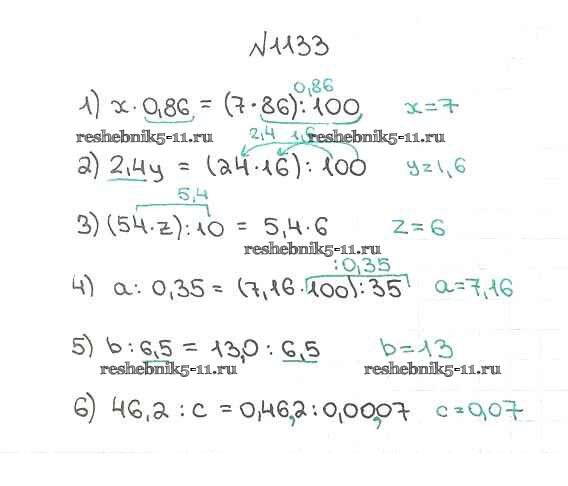 №1133
0,86
1) x · 0,86 = (7 · 86) : 100 x = 7
reshebnik5-11.ru reshebnik5-11.ru
2,4 1,6
2) 2,4y = (24 · 16) : 100 y = 1,6
5,4
3) (54 · z) : 10 = 5,4 · 6 z = 6
reshebnik5-11.ru
: 0,35
4) a : 0,35 = (7,16 · 100) : 35 a = 7,16
5) b : 6,5 = 13,0 : 6,5 b = 13
reshebnik5-11.ru reshebnik5-11.ru
6) 46,2 : c = 0,46,2 : 0,00,07 c = 0,07